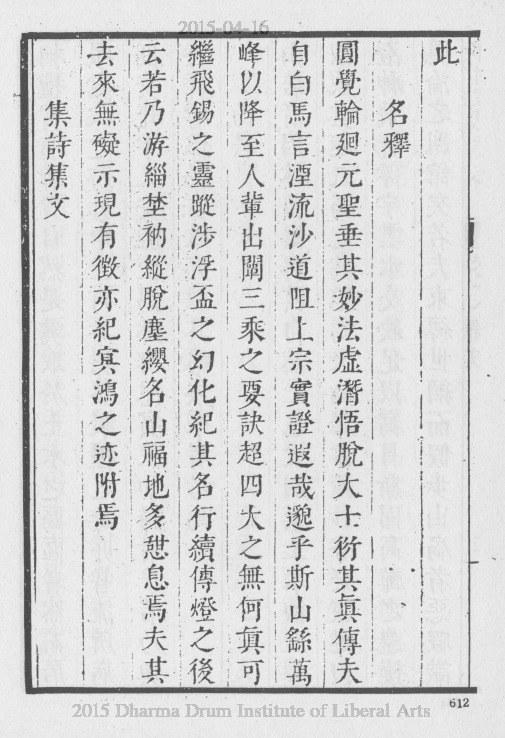 2015-04-16
此
名釋
圓覺輪廻元聖垂其妙法虛潛悟脫大士衍其眞傳夫
自白馬言湮流沙道阻上宗實證遐哉邈乎斯山繇萬
峰以降至人輩出闡三乘之要訣超四大之無何眞可
繼飛錫之靈蹤涉浮盃之幻化紀其名行續傳燈之後
云若乃游緇埜衲縱脫塵纓名山福地多憇息焉夫其
去來無礙示現有徵亦紀冥鴻之迹附焉
集詩集文
612
2015 Dharma Drum Institute of Liberal Arts